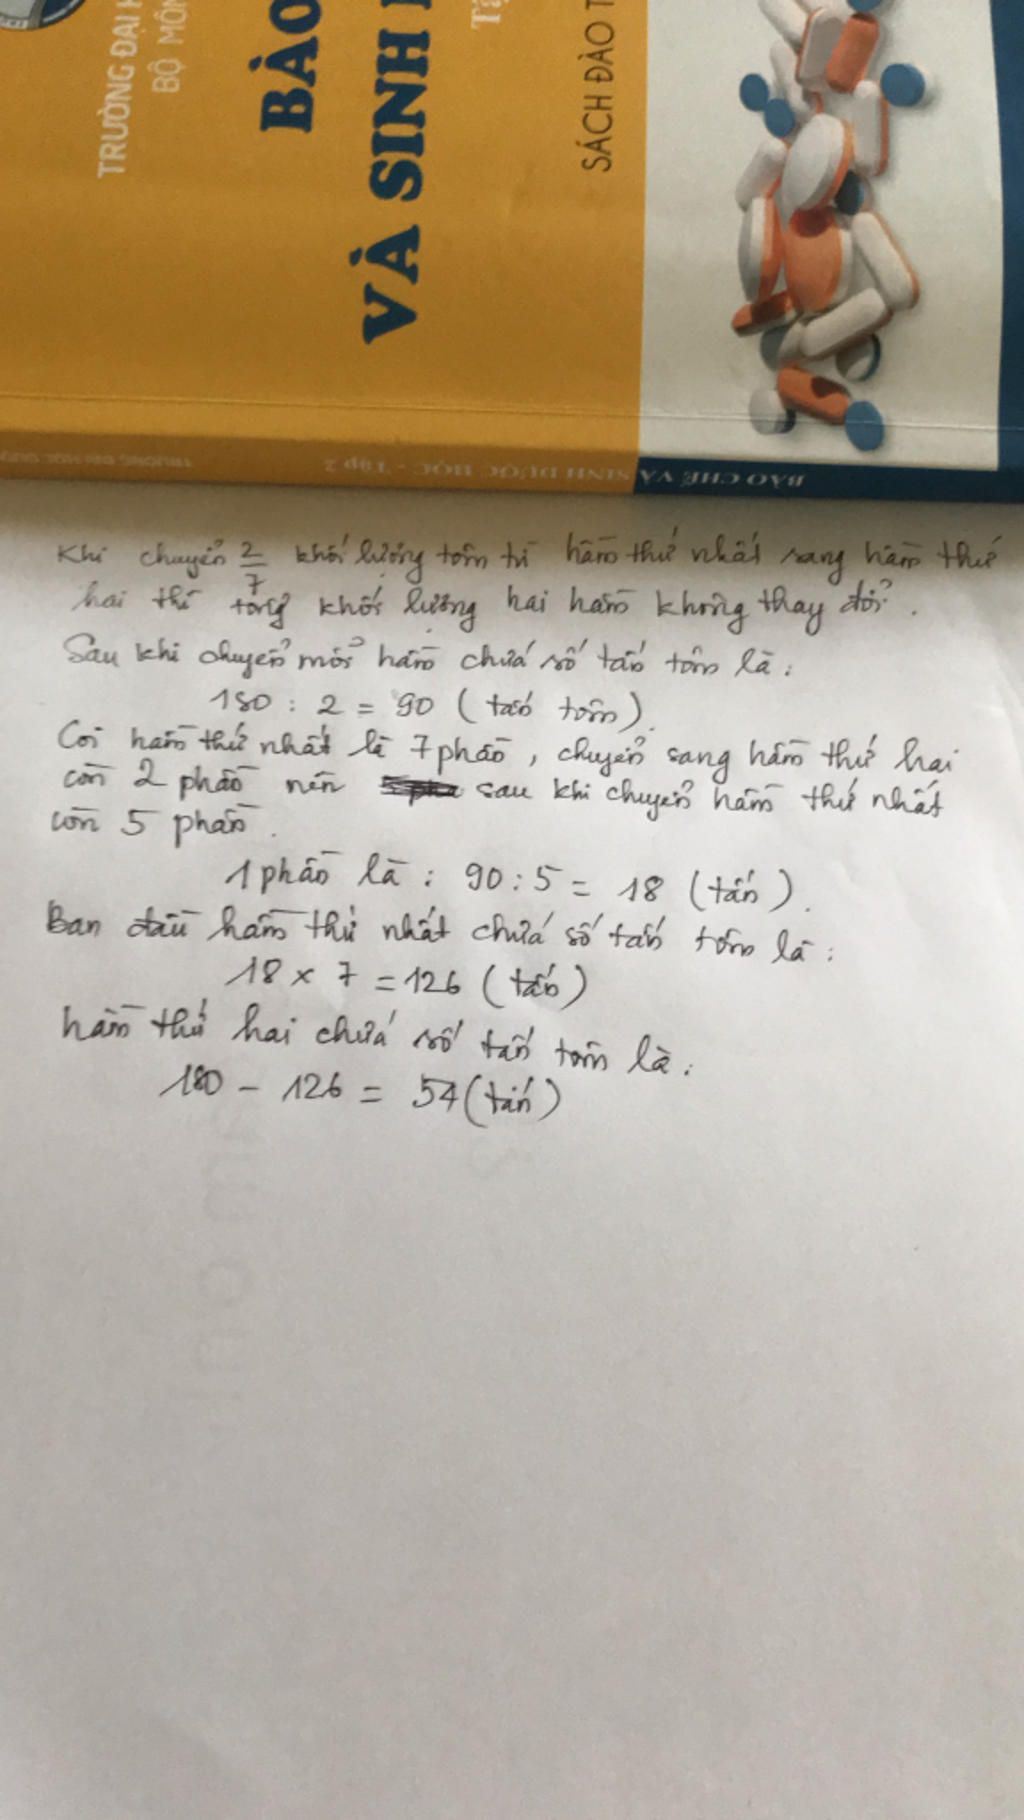 TRƯỜNG ĐẠI H
BỘ MÔN
BÀO
VÀ SINH
SÁCH ĐÀO T
BÀO CHẾ VÀ SINH DƯỢC HỌC - Tập 2
TRƯỜNG ĐẠI HỌC DƯỢC
Khi chuyển 2/7 khối lượng tôm từ hầm thứ nhất sang hầm thứ
hai thì tổng khối lượng hai hầm không thay đổi.
Sau khi chuyển mỗi hầm chứa số tấn tôm là:
180 : 2 = 90 (tấn tôm).
Coi hầm thứ nhất là 7 phần, chuyển sang hầm thứ hai
còn 2 phần nên sau khi chuyển hầm thứ nhất
còn 5 phần.
1 phần là : 90 : 5 = 18 (tấn).
Ban đầu hầm thứ nhất chứa số tấn tôm là:
18 x 7 = 126 (tấn)
hầm thứ hai chứa số tấn tôm là:
180 - 126 = 54 (tấn)